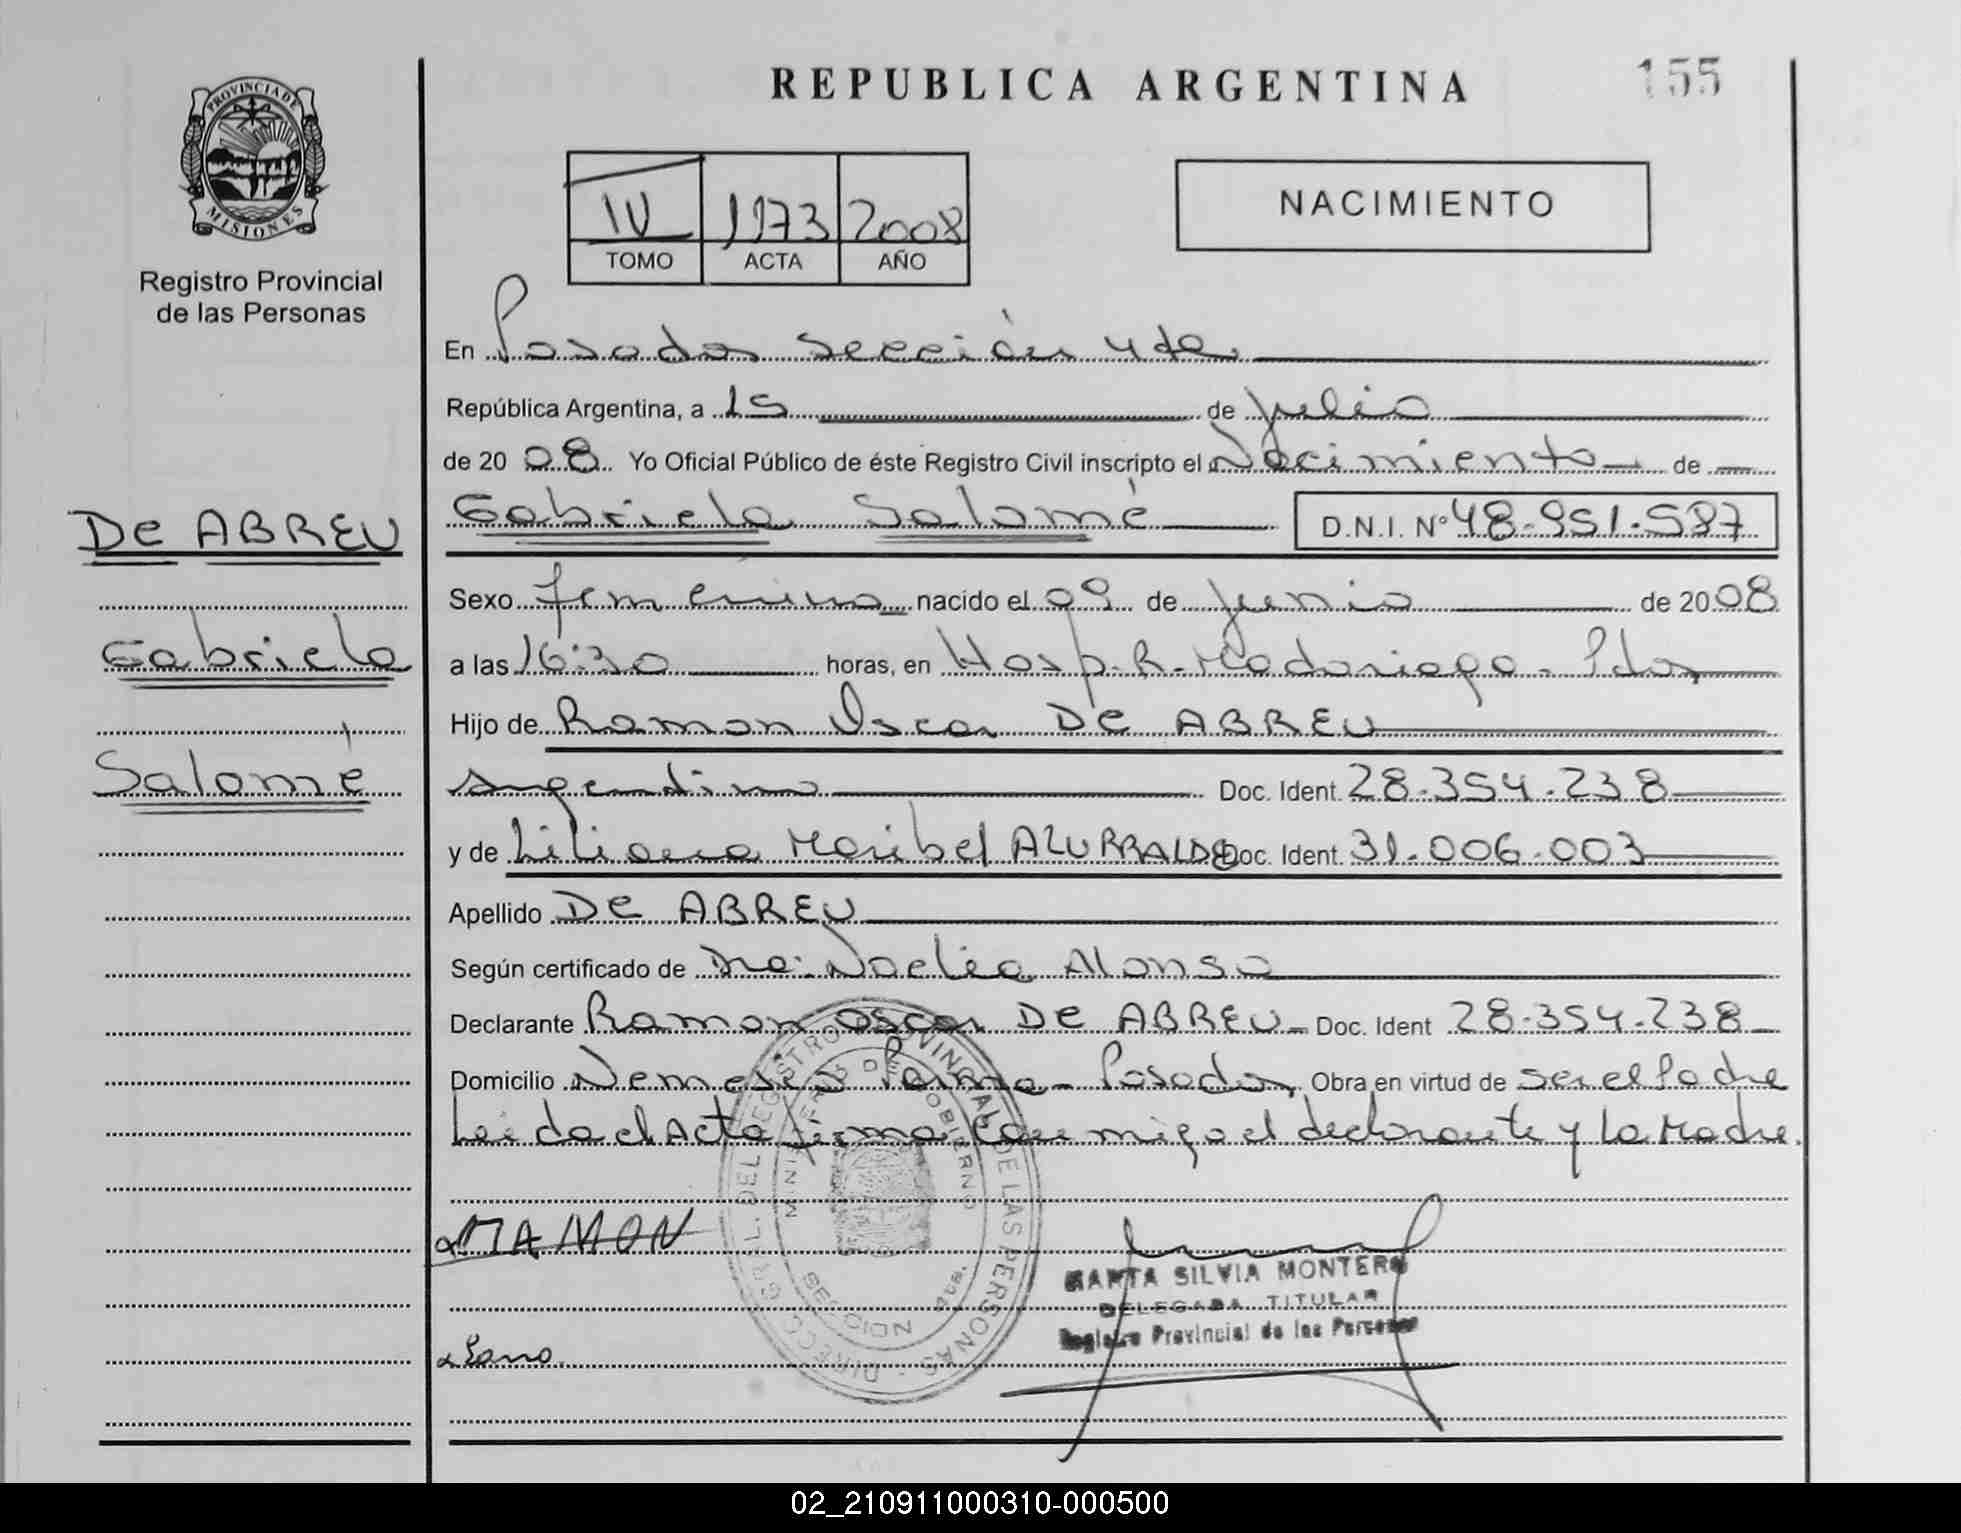 REPUBLICA ARGENTINA
155
PROVINCIA DE
MISIONES
Registro Provincial
de las Personas
IV 1173 2008
TOMO ACTA AÑO
NACIMIENTO
En Posadas Sección 4ta
República Argentina, a 15 de Julio
de 20 08 Yo Oficial Público de éste Registro Civil inscripto el Nacimiento de
Gabriela Salomé D.N.I. Nº 48.951.587
DE ABREU
Gabriela
Salomé
Sexo femenino nacido el 09 de Junio de 2008
a las 16:30 horas, en Hosp. R. Madariaga - Pdas
Hijo de Ramon Oscar DE ABREU
Argentino Doc. Ident. 28.354.238
y de Liliana Maribel AZURRALDE Doc. Ident. 31.006.003
Apellido DE ABREU
Según certificado de Dra: Noelia Alonso
Declarante Ramon Oscar DE ABREU Doc. Ident 28.354.238
Domicilio Nemesio Parma - Posadas Obra en virtud de ser el Padre
Leída el Acta firma conmigo el declarante y la Madre.
DIRECC. GRAL. DEL REGISTRO PROVINCIAL DE LAS PERSONAS
MINISTERIO DE GOBIERNO
SECCION
MARTA SILVIA MONTERO
DELEGADA TITULAR
Registro Provincial de las Personas
02_210911000310-000500